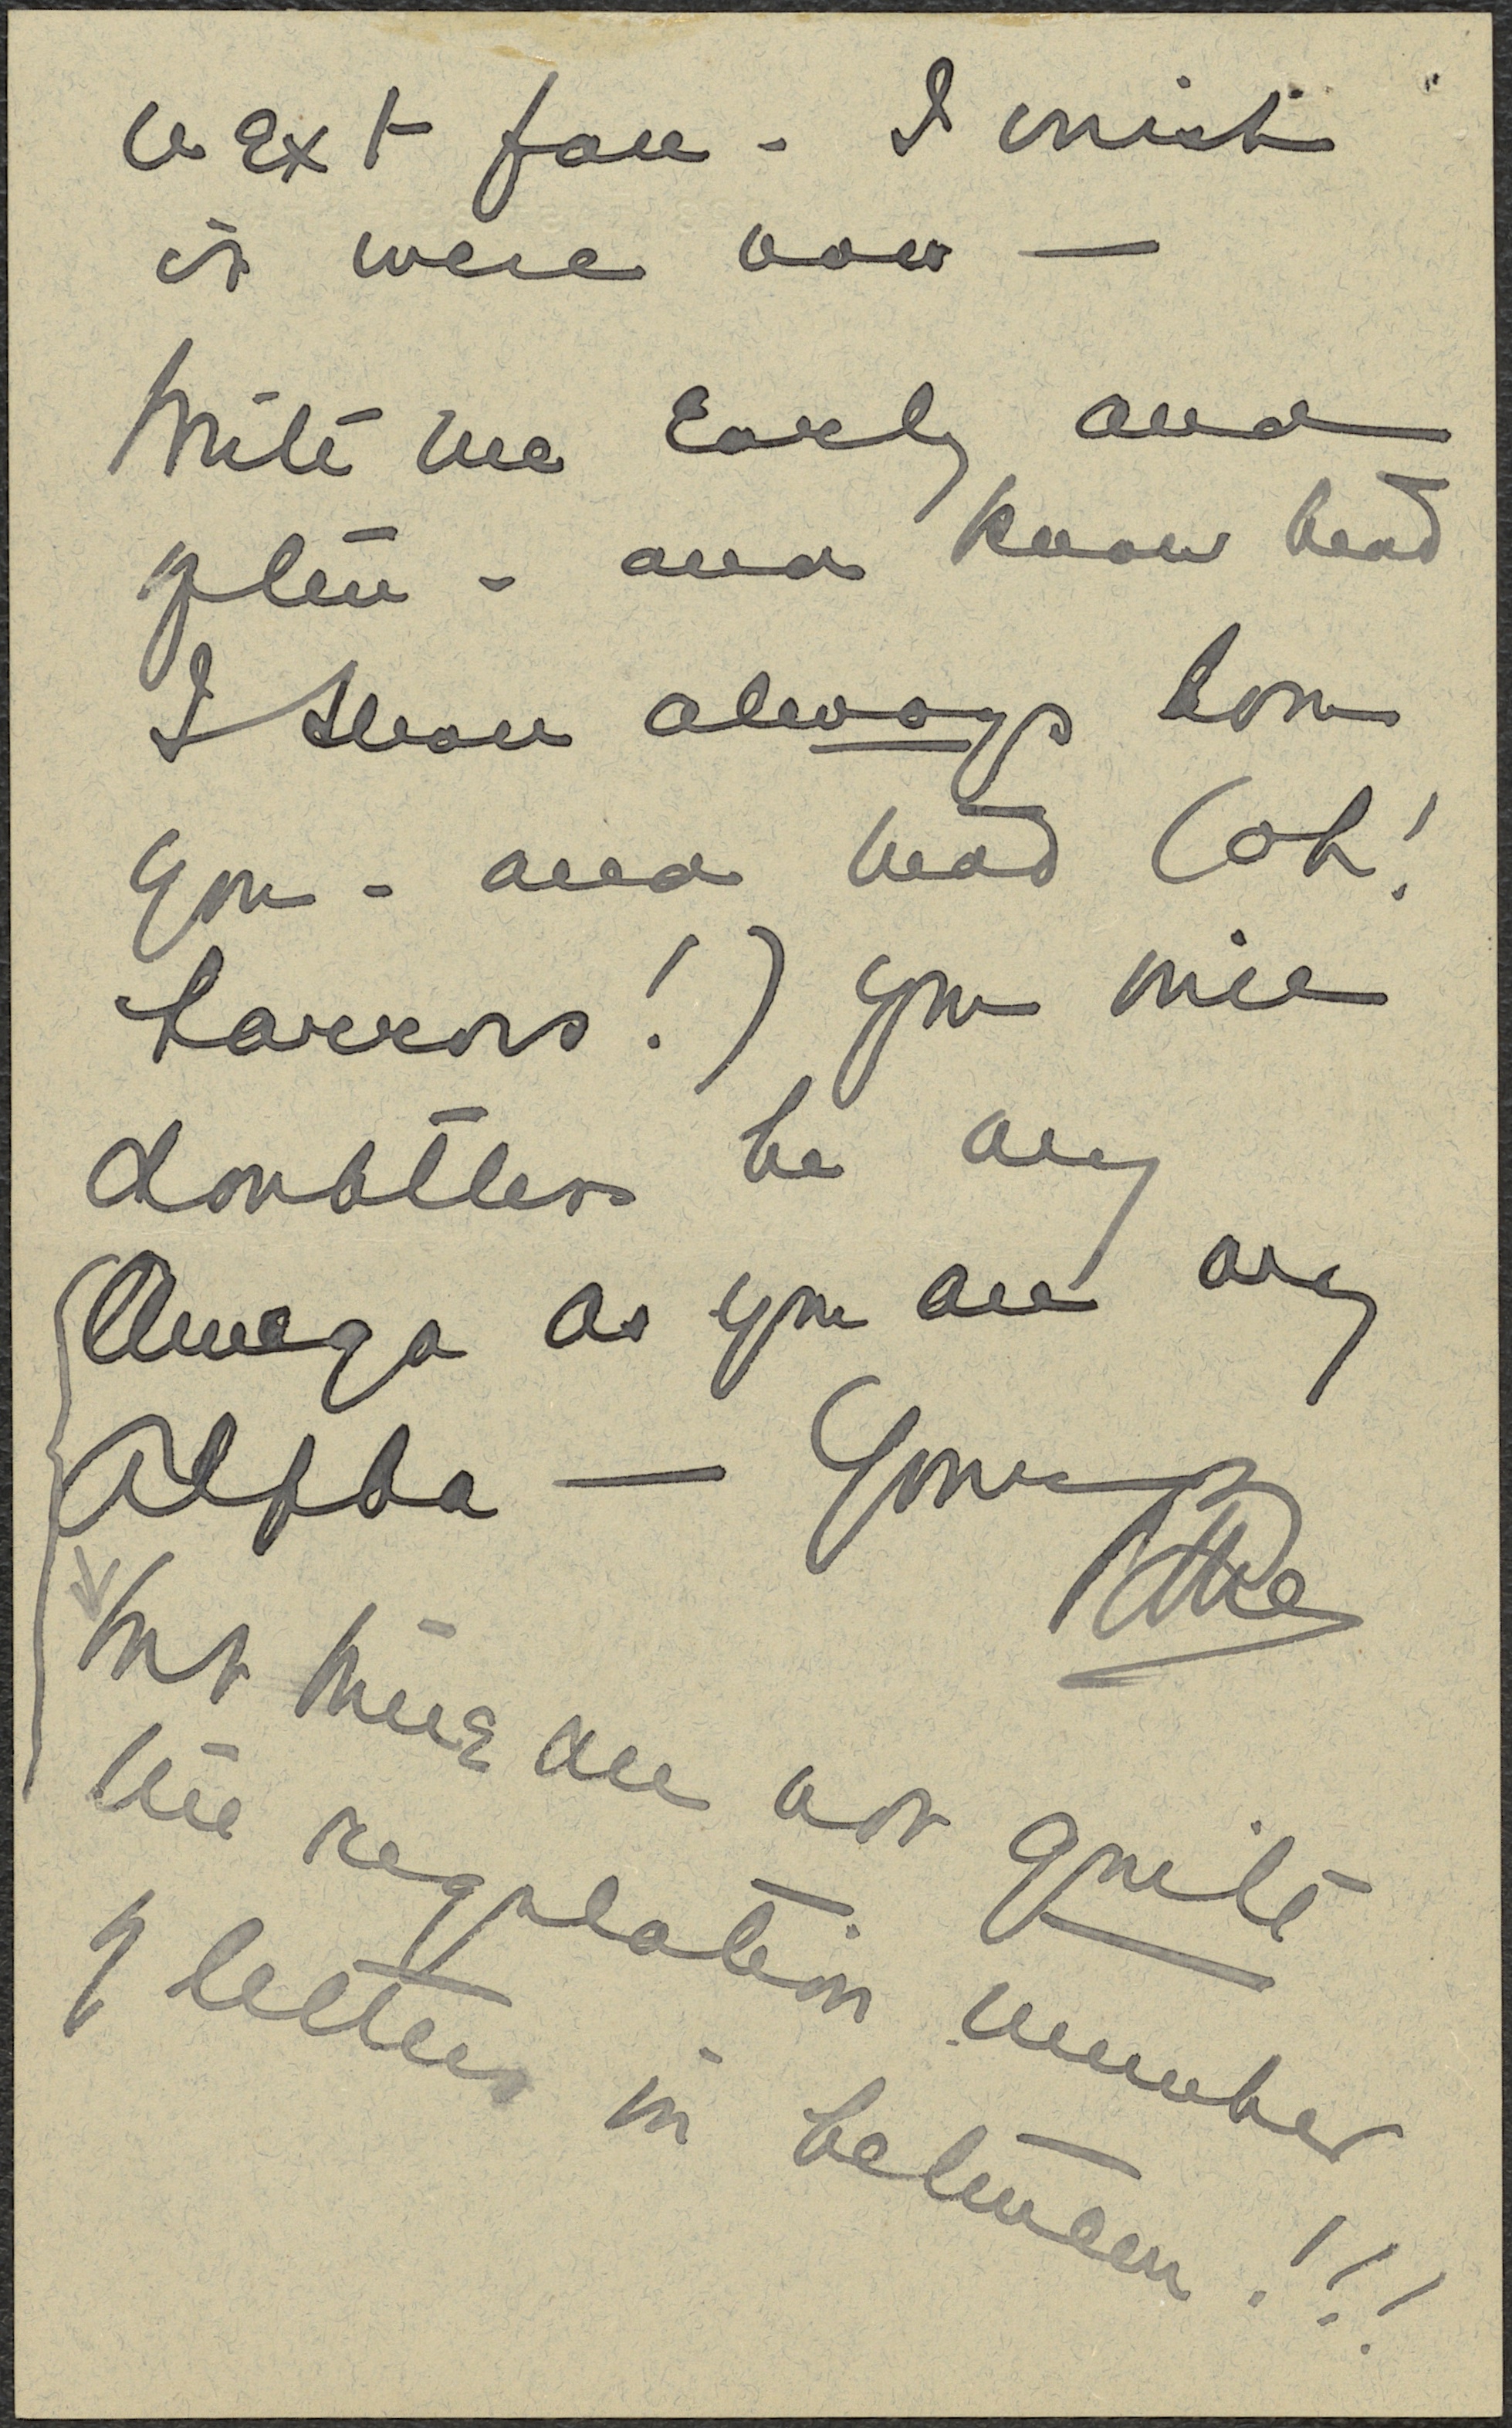 next fall - I wish
it were now —
Write me Early and
often - and know that
I shall always love
you - and that (oh!
horrors!) you will
doubtless be my
Omega as you are my
Alpha — Yours
but there are not quite
the regulation number
of letters in between!!!